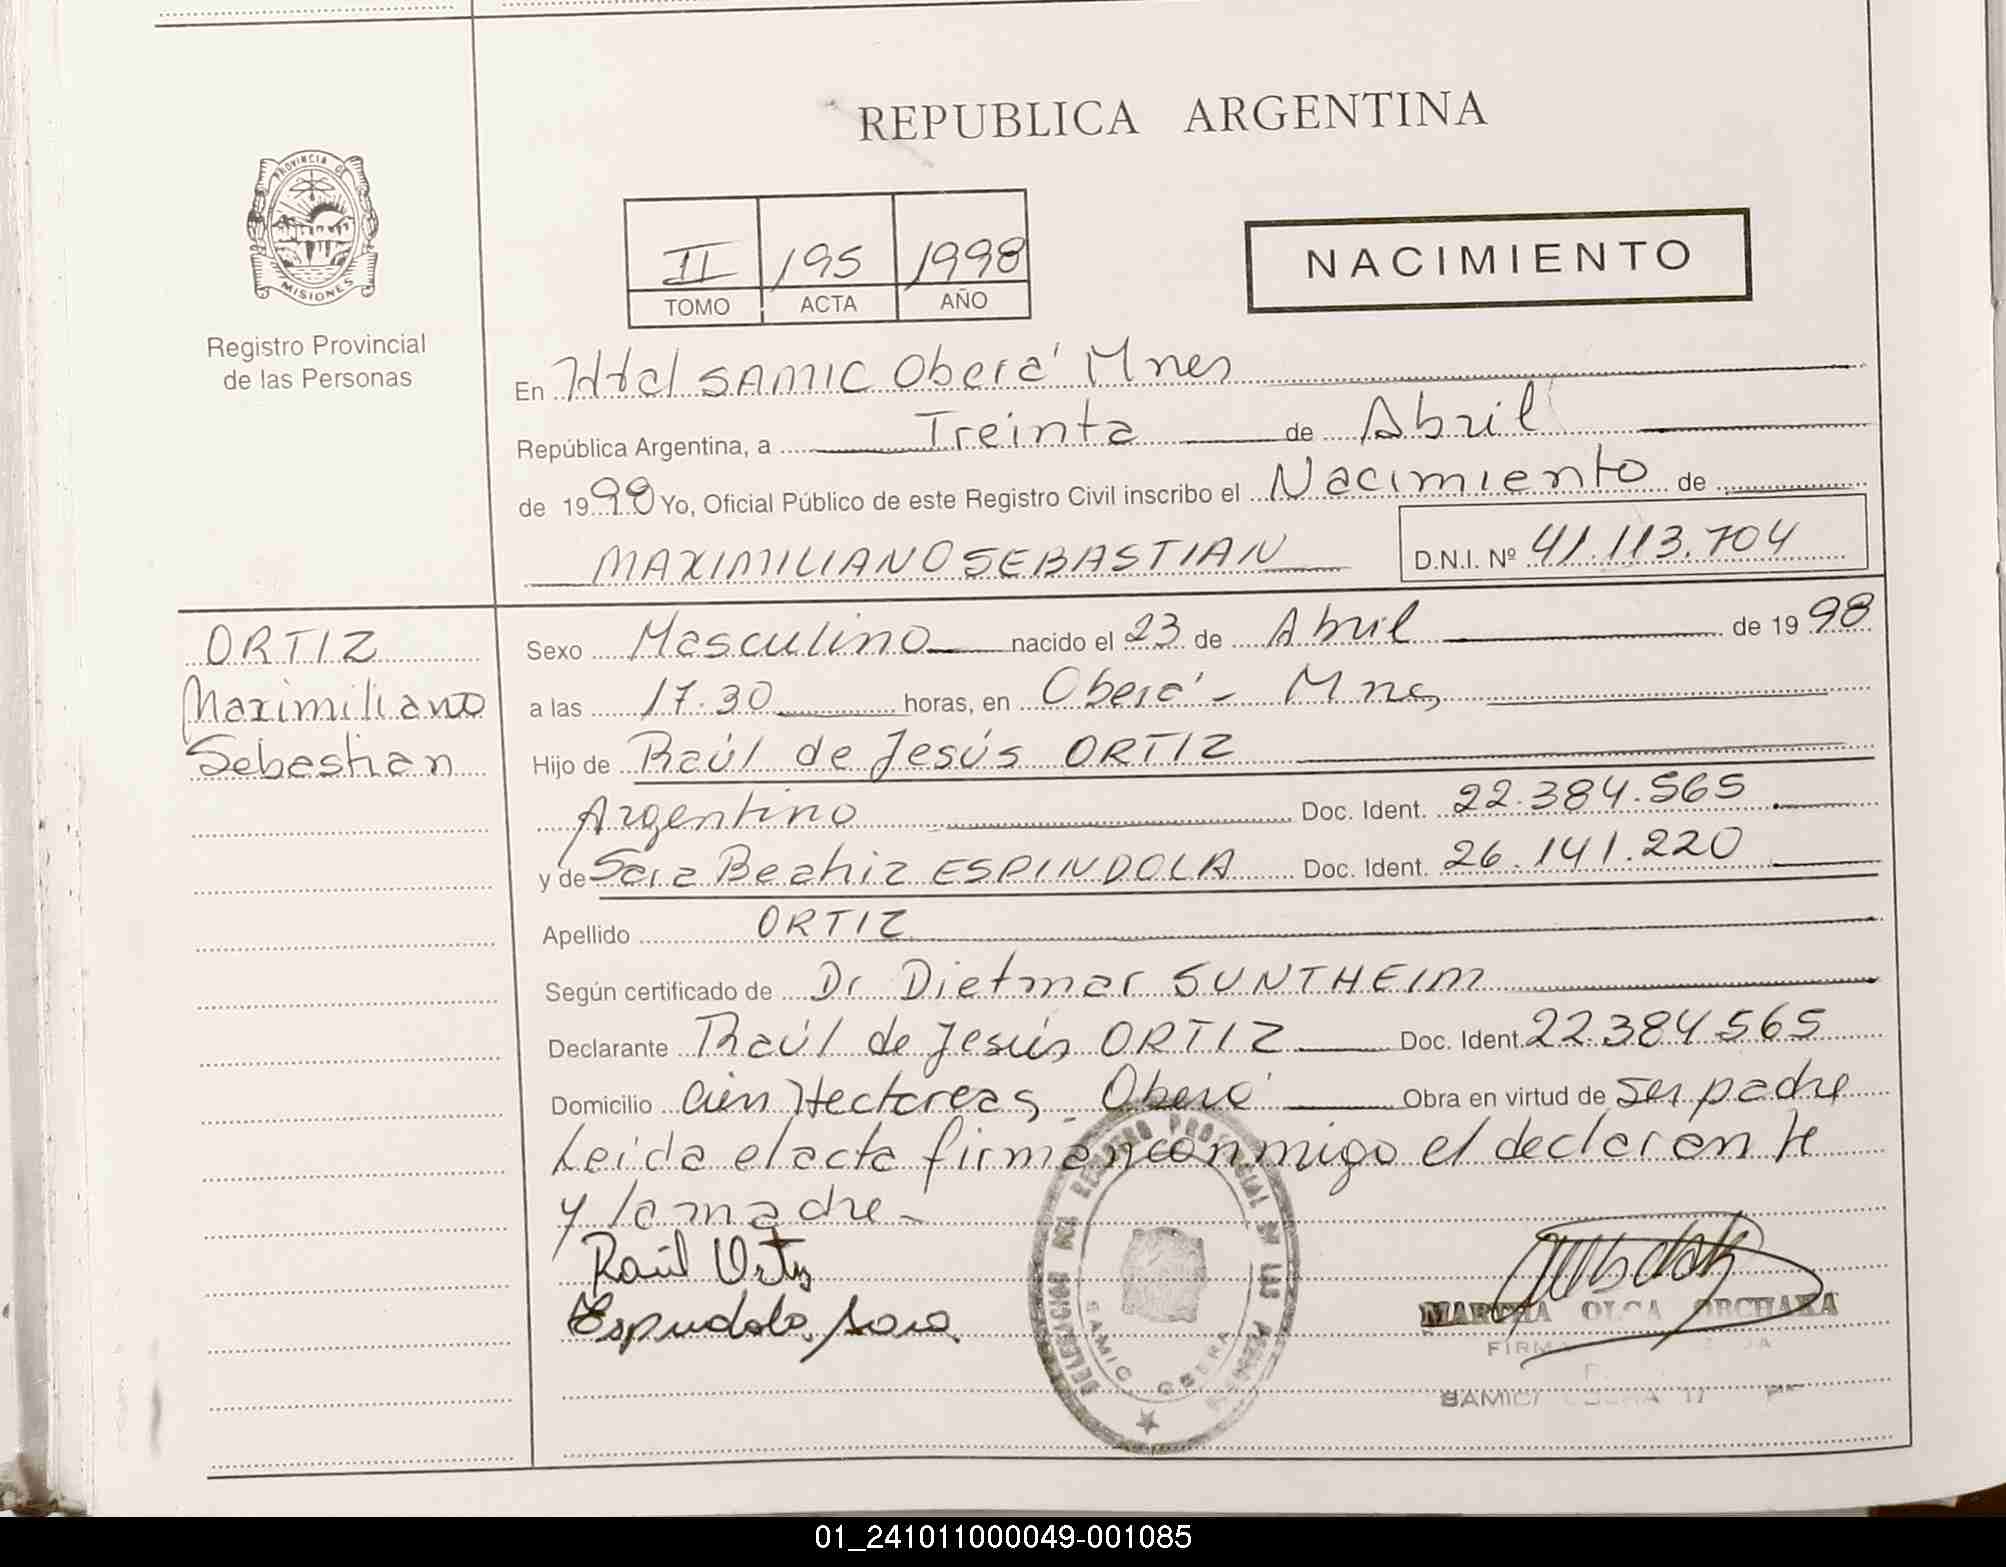 REPUBLICA ARGENTINA
PROVINCIA DE
MISIONES
Registro Provincial
de las Personas
II 195 1998
TOMO ACTA AÑO
NACIMIENTO
En Htal SAMIC Oberá Mnes
República Argentina, a Treinta de Abril
de 1998 Yo, Oficial Público de este Registro Civil inscribo el Nacimiento de
MAXIMILIANO SEBASTIAN D.N.I. Nº 41.113.704
ORTIZ
Maximiliano
Sebastian
Sexo Masculino nacido el 23 de Abril de 1998
a las 17.30 horas, en Oberá - Mnes
Hijo de Raúl de Jesús ORTIZ
Argentino Doc. Ident. 22.384.565
y de Sara Beatriz ESPINDOLA Doc. Ident. 26.141.220
Apellido ORTIZ
Según certificado de Dr Dietmar SUNTHEIM
Declarante Raúl de Jesús ORTIZ Doc. Ident. 22.384.565
Domicilio Cien Hectareas - Oberá Obra en virtud de ser padre
Leida el acta firman conmigo el declarante
y la madre -
Raúl Ortiz
Espindola, Sara
DELEGACION DEL REGISTRO PROVINCIAL DE LAS PERSONAS
SAMIC OBERA
MARTHA OLGA ORCHAXA
SAMIC
01_241011000049-001085